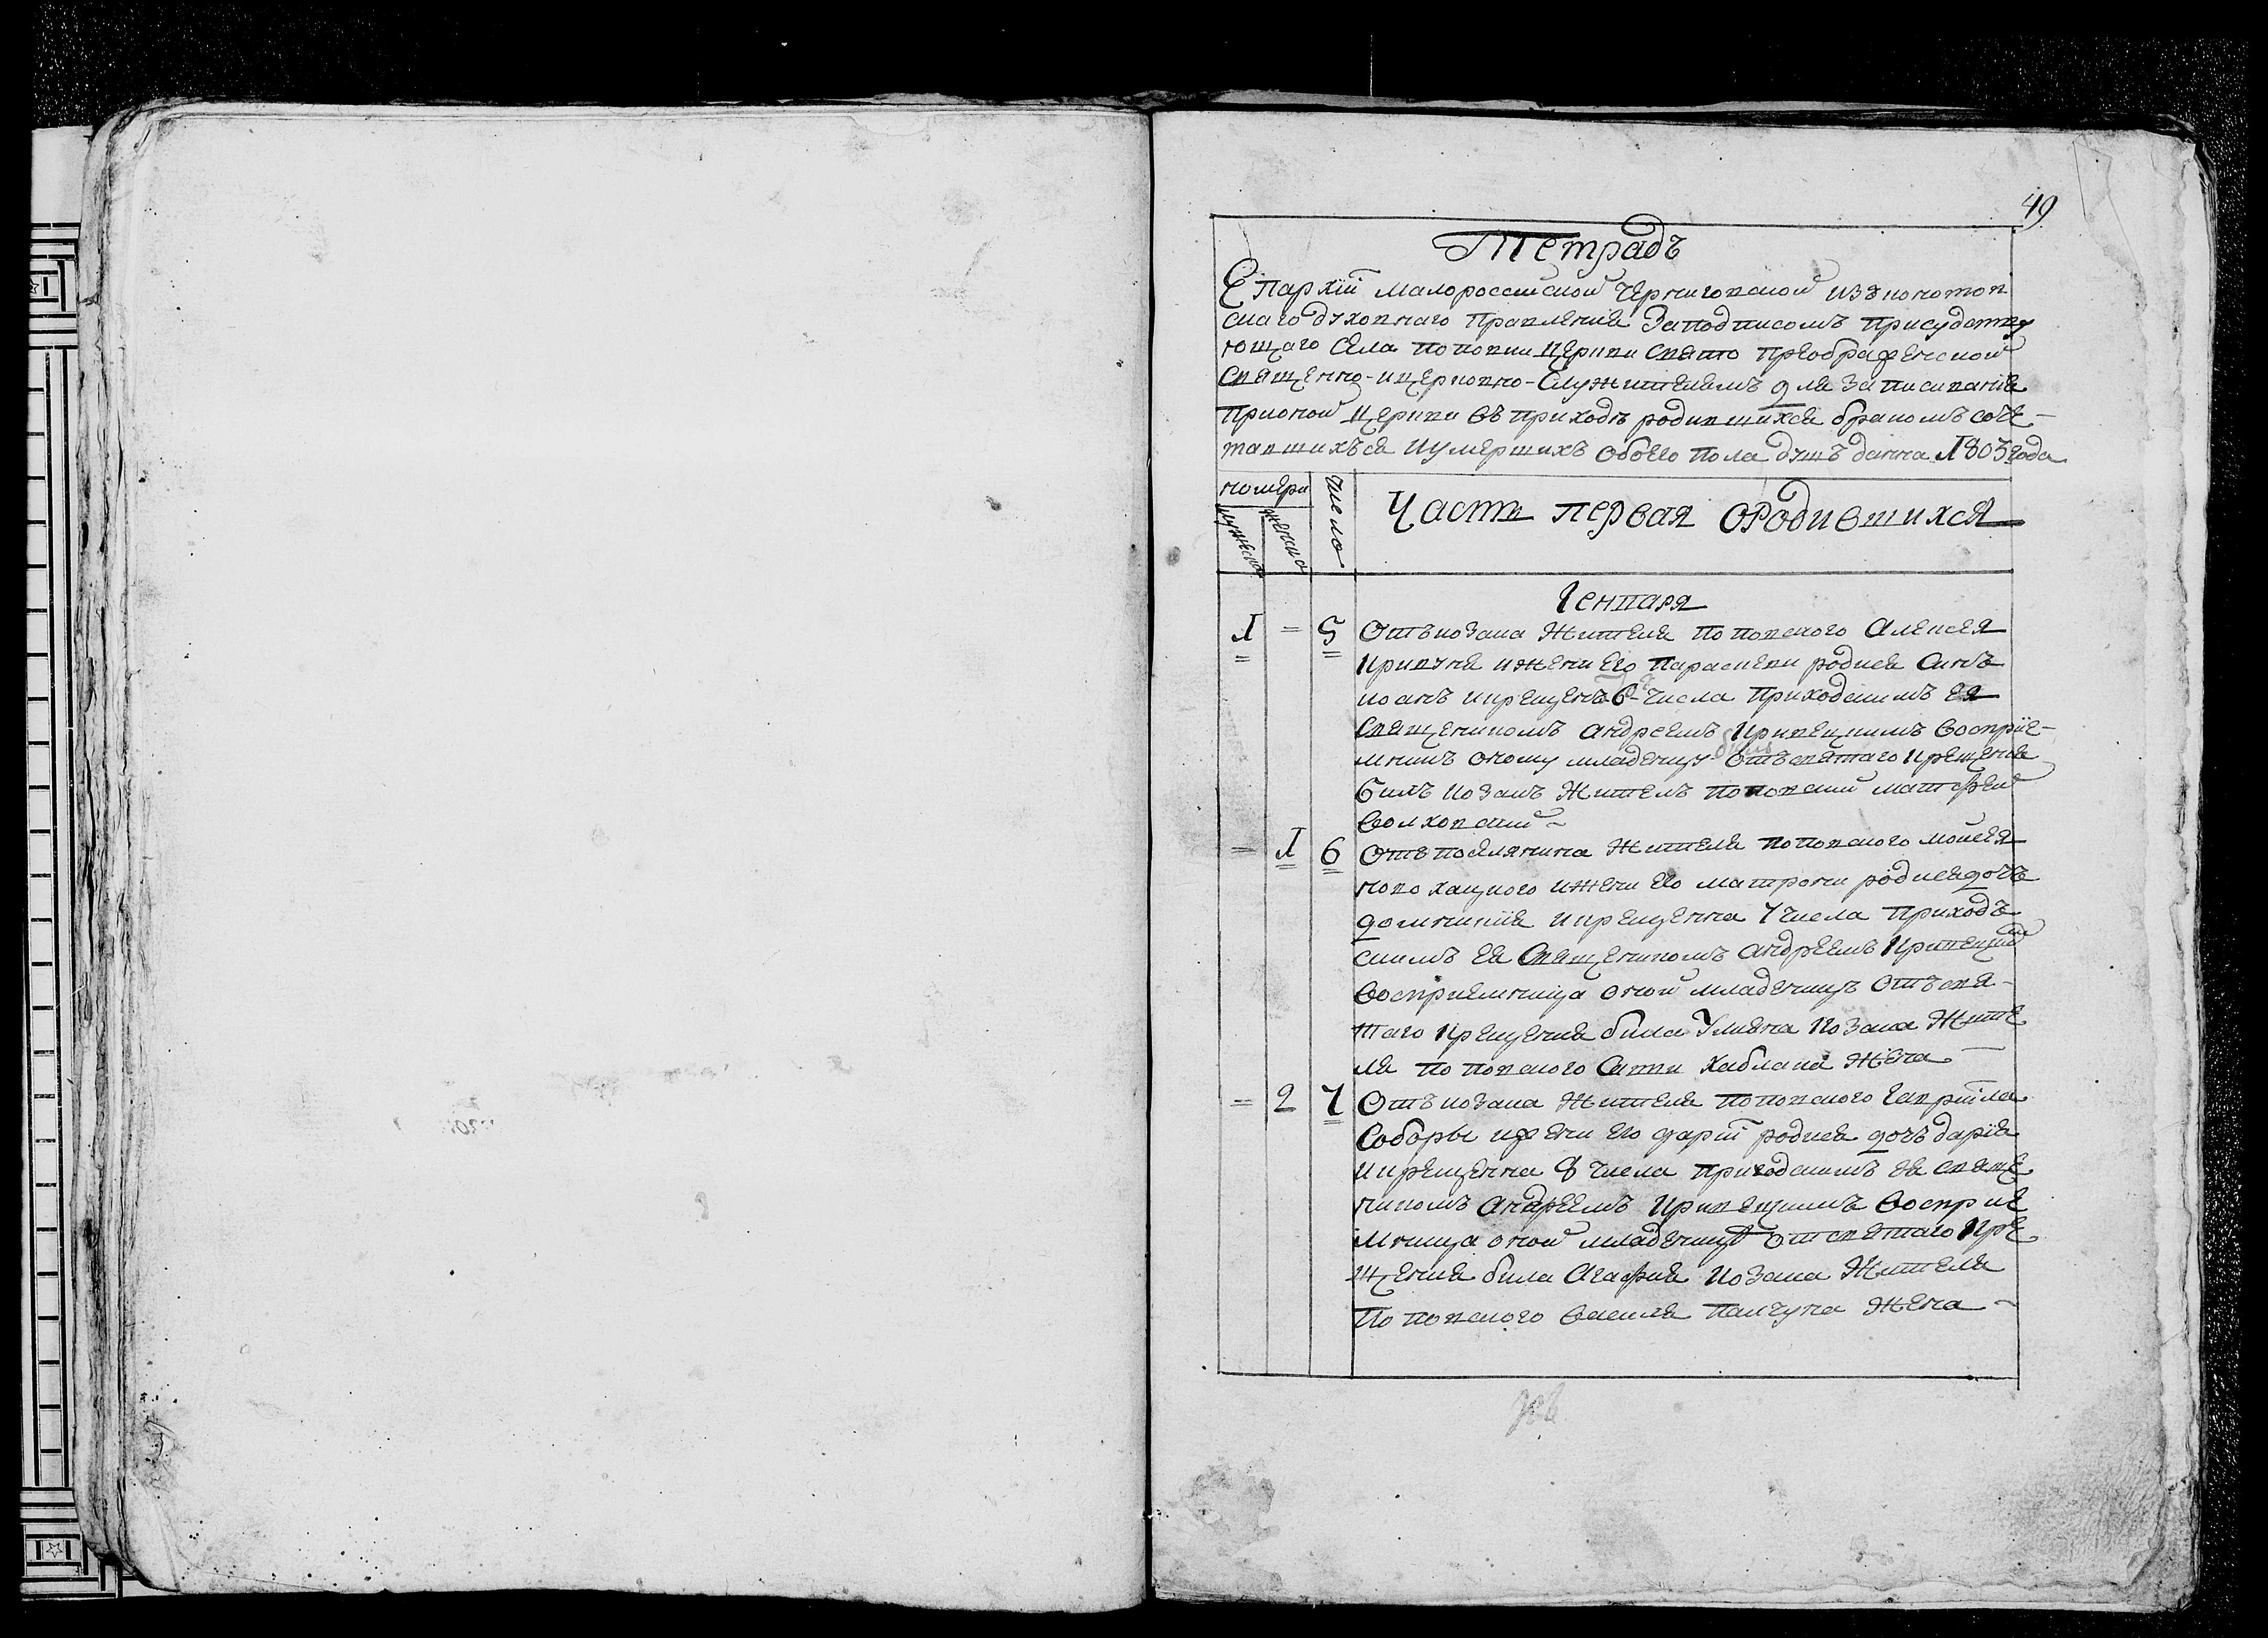 49
Тетрадъ
Епархіи малороссийской Черниговской изъ конотоп
скаго духовнаго Правления Заподписомъ присудству
ющаго села поповки церкви свято преображенской
священно-ицерковно-служителямъ для записиванія
прионой церкви въ приходѣ родившихся бракомъ соче-
тавшихъся иумершихъ обоего пола душъ данна 1803 года
номери
мужеска
женско
число
Часть первая ородившихся
Генваря
1 = 5 Отъ козака жителя поповского Алексея
Кривуня ижени его Параскеви родися синъ
иоанъ икрещенъ 6 числа приходскимъ ея
священикомъ андреемъ Кривецкимъ воспріе-
мникъ оному младенцу отъ святаго крещения
билъ козакъ житель поповский матфей
волховский
= 1 6 Отъ поселянина жителя поповского мойсея
новохацкого ижени его матрони родися дочъ
домникия икрещенна 7 числа приход
скимъ ея священикомъ андреемъ Кривецким
восприемница оной младеницѣ отъ свя-
таго крещения била Улияна козака жите
ля поповского Савви Хаблака жена
= 2 7 Отъ козака жителя поповского Гавріила
Соборы ижени его дарії родися дочъ дарія
икрещенна 8 числа приходскимъ ея свяще
никомъ андреемъ Кривецкимъ восприе
мница оной младеницѣ от святаго кре
щения била Агафия козака жителя
поповского василя Палчука жена